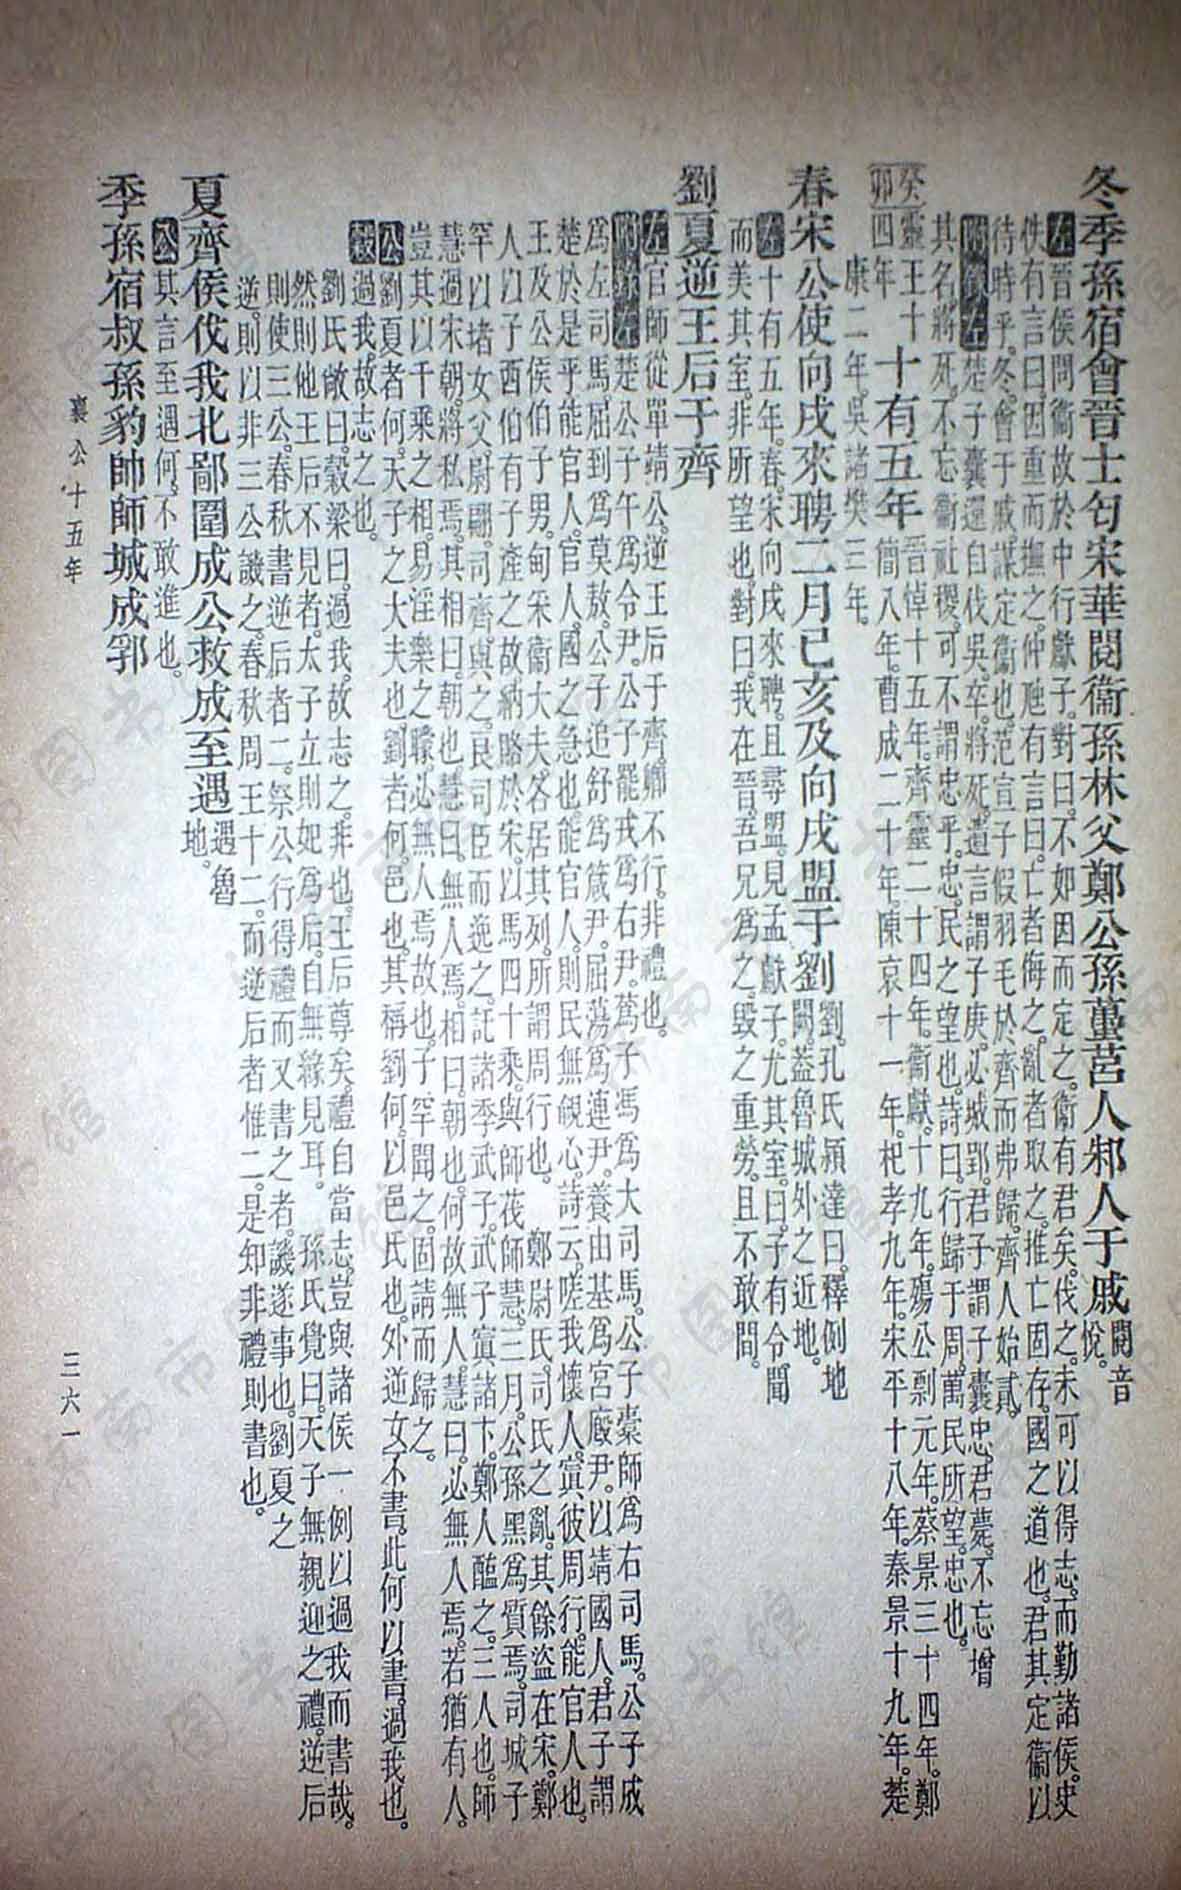 冬季孫宿會晉士匄宋華閱衞孫林父鄭公孫蠆莒人邾人于戚閱音悅。
左晉侯問衞故於中行獻子。對曰。不如因而定之。衞有君矣。伐之。未可以得志。而勤諸侯。史
佚有言曰。因重而撫之。仲虺有言曰。亡者侮之。亂者取之。推亡固存。國之道也。君其定衞以
待時乎。冬。會于戚。謀定衞也。范宣子假羽毛於齊而弗歸。齊人始貳。
附錄左楚子囊還自伐吳。卒。將死。遺言謂子庚。必城郢。君子謂子囊忠。君薨。不忘增
其名。將死。不忘衞社稷。可不謂忠乎。忠。民之望也。詩曰。行歸于周。萬民所望。忠也。
癸卯靈王十四年十有五年晉悼十五年。齊靈二十四年。衞獻十九年。殤公剽元年。蔡景三十四年。鄭
簡八年。曹成二十年。陳哀十一年。杞孝九年。宋平十八年。秦景十九年。楚
康二年。吳諸樊三年。
春宋公使向戌來聘二月己亥及向戌盟于劉劉。孔氏穎達曰。釋例地闕。蓋魯城外之近地。
左十有五年。春。宋向戌來聘。且尋盟。見孟獻子。尤其室。曰。子有令聞
而美其室。非所望也。對曰。我在晉。吾兄爲之。毀之重勞。且不敢間。
劉夏逆王后于齊
左官師從單靖公。逆王后于齊。卿不行。非禮也。
附錄左楚公子午爲令尹。公子罷戎爲右尹。蒍子馮爲大司馬。公子橐師爲右司馬。公子成
爲左司馬。屈到爲莫敖。公子追舒爲箴尹。屈蕩爲連尹。養由基爲宮廄尹。以靖國人。君子謂
楚於是乎能官人。官人。國之急也。能官人。則民無覦心。詩云。嗟我懷人。寘彼周行。能官人也。
王及公侯伯子男。甸采衞大夫。各居其列。所謂周行也。　鄭尉氏。司氏之亂。其餘盜在宋。鄭
人以子西伯有子產之故。納賂於宋。以馬四十乘。與師茷師慧。三月。公孫黑爲質焉。司城子
罕以堵女父。尉翩。司齊。與之。良司臣而逸之。託諸季武子。武子寘諸卞。鄭人醢之。三人也。師
慧過宋朝。將私焉。其相曰。朝也。慧曰。無人焉。相曰。朝也。何故無人。慧曰。必無人焉。若猶有人。
豈其以千乘之相。易淫樂之矇。必無人焉故也。子罕聞之。固請而歸之。
公劉夏者何。天子之大夫也。劉者何。邑也。其稱劉何。以邑氏也。外逆女不書。此何以書。過我也。
穀過我。故志之也。
劉氏敞曰。穀梁曰。過我。故志之。非也。王后尊矣。禮自當志。豈與諸侯一例以過我而書哉。
然則他王后不見者。太子立則妃爲后。自無緣見耳。　孫氏覺曰。天子無親迎之禮。逆后
則使三公。春秋書逆后者二。祭公行得禮而又書之者。譏遂事也。劉夏之
逆。則以非三公譏之。春秋周王十二。而逆后者惟二。是知非禮則書也。
夏齊侯伐我北鄙圍成公救成至遇遇。魯地。
公其言至遇何。不敢進也。
季孫宿叔孫豹帥師城成郛
襄公十五年
三六一